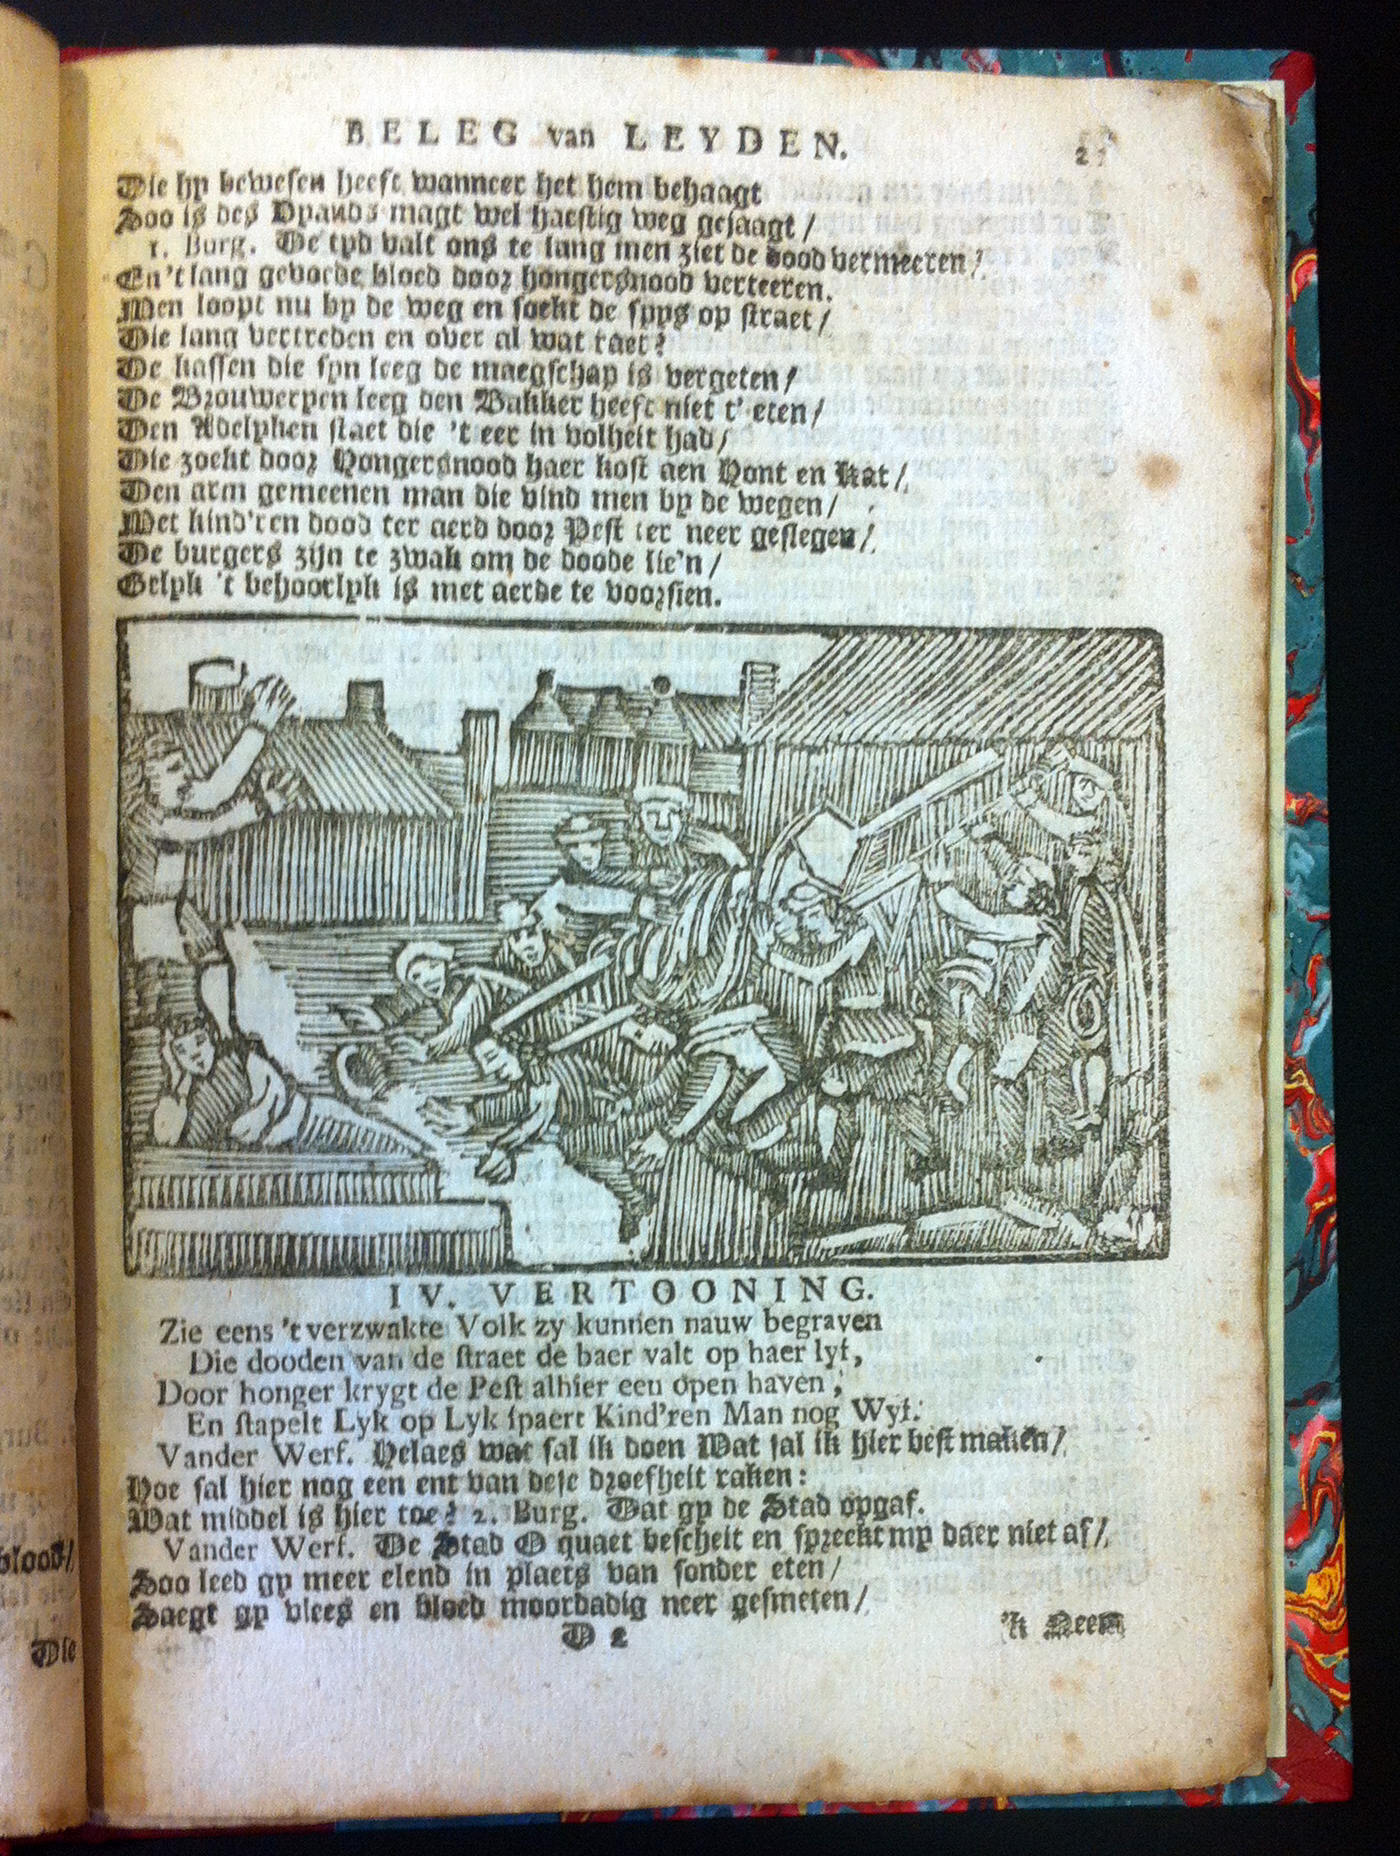 BELEG van LEYDEN.
Die hy bewesen heeft wanneer het hem behaagt
Soo is des Spands magt wel haestig weg gejaagt /
1. Burg. De tyd valt ons te lang men ziet de dood vermeeren /
En 't lang gevoede bloed door hongersnood verteeren.
Men loopt nu by de weg en soekt de spys op straet /
Die lang vertreden en over al wat raet?
De kassen die syn leeg de maegschap is vergeten /
De Brouweryen leeg den Bakker heeft niet t' eten /
Den Adelyken staet die 't eer in volheit had /
Die zoekt door Hongersnood haer kost aen Hont en Kat /
Den arm gemeenen man die vind men by de wegen /
Met kind'ren dood ter aerd door Pest ter neer geslegen /
De burgers zijn te zwak om de doode lie'n /
Gelyk 't behoorlyk is met aerde te voorsien.
IV. VERTOONING.
Zie eens 't verzwakte Volk zy kunnen nauw begraven
Die dooden van de straet de baer valt op haer lyf,
Door honger krygt de Pest alhier een open haven,
En stapelt Lyk op Lyk spaert Kind'ren Man nog Wyf.
Vander Werf. Helaes wat sal ik doen Wat sal ik hier best maken /
Hoe sal hier nog een ent van dese droefheit raken:
Wat middel is hier toe? 2. Burg. Dat gy de Stad opgaf.
Vander Werf. De Stad O quaet bescheit en spreekt my daer niet af /
Soo leed gy meer elend in plaets van sonder eten /
Saegt gy vlees en bloed moordadig neer gesmeten /
D 2
'k Neem
bloodt /
Die